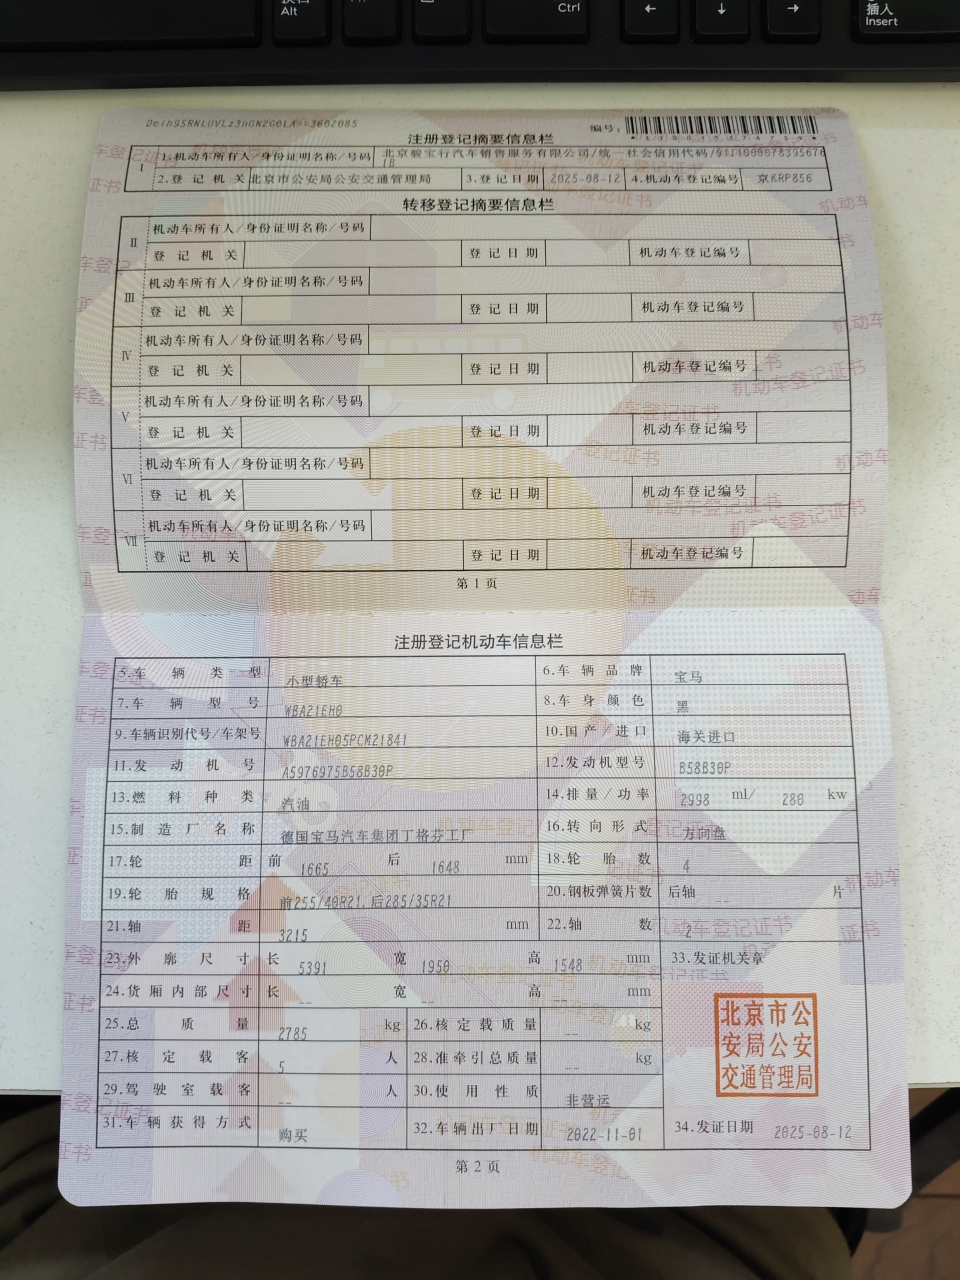 Alt
Ctrl
插入
Insert
编号:
注册登记摘要信息栏
I
1.机动车所有人/身份证明名称/号码 北京骏宝行汽车销售服务有限公司/统一社会信用代码/
2.登记机关 北京市公安局公安交通管理局 3.登记日期 2025-08-12 4.机动车登记编号 京KRP856
转移登记摘要信息栏
II 机动车所有人/身份证明名称/号码
登记机关 登记日期 机动车登记编号
III 机动车所有人/身份证明名称/号码
登记机关 登记日期 机动车登记编号
IV 机动车所有人/身份证明名称/号码
登记机关 登记日期 机动车登记编号
V 机动车所有人/身份证明名称/号码
登记机关 登记日期 机动车登记编号
VI 机动车所有人/身份证明名称/号码
登记机关 登记日期 机动车登记编号
VII 机动车所有人/身份证明名称/号码
登记机关 登记日期 机动车登记编号
第1页
注册登记机动车信息栏
5.车辆类型 小型轿车 6.车辆品牌 宝马
7.车辆型号 WBA21EH0 8.车身颜色 黑
9.车辆识别代号/车架号 WBA21EH05PCM21841 10.国产/进口 海关进口
11.发动机号 A5976975B58B30P 12.发动机型号 B58B30P
13.燃料种类 汽油 14.排量/功率 2998 ml/ 280 kw
15.制造厂名称 德国宝马汽车集团丁格芬工厂 16.转向形式 方向盘
17.轮距 前 1665 后 1648 mm 18.轮胎数 4
19.轮胎规格 前255/40R21,后285/35R21 20.钢板弹簧片数 后轴 -- 片
21.轴距 3215 mm 22.轴数 2
23.外廓尺寸 长 5391 宽 1950 高 1548 mm 33.发证机关章
24.货厢内部尺寸 长 -- 宽 -- 高 -- mm
25.总质量 2785 kg 26.核定载质量 -- kg
27.核定载客 5 人 28.准牵引总质量 -- kg
29.驾驶室载客 -- 人 30.使用性质 非营运
31.车辆获得方式 购买 32.车辆出厂日期 2022-11-01 34.发证日期 2025-08-12
北京市公
安局公安
交通管理局
第2页